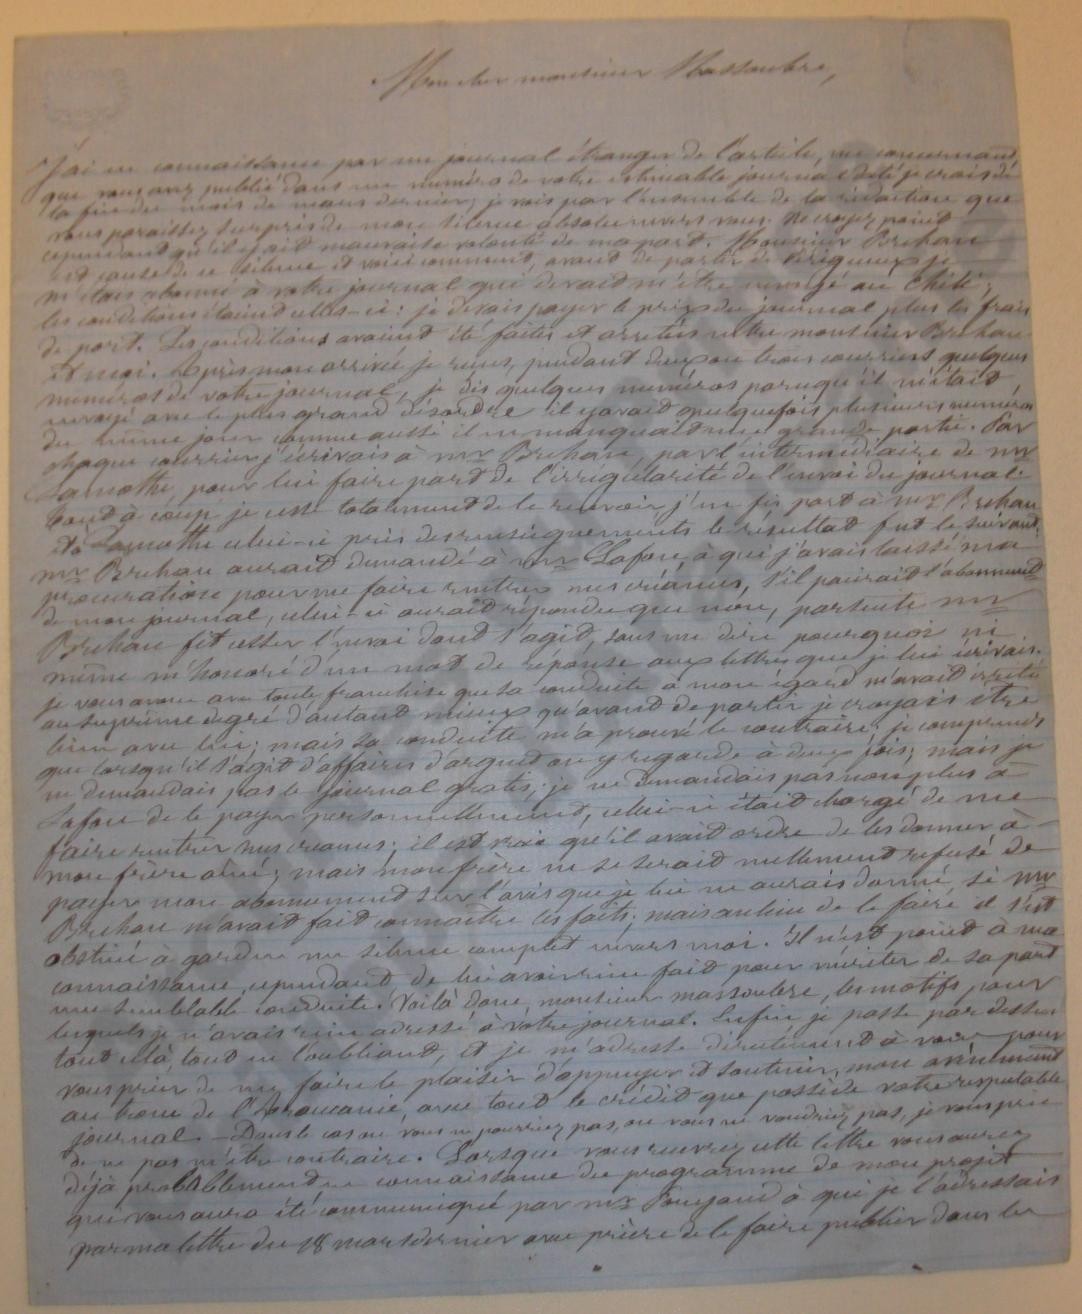 Mon cher monsieur Massoubre,
J'ai eu connaissance par un journal étranger de l'article, me concernant,
que vous avez publié dans un numéro de votre estimable journal daté je crois de
la fin du mois de mars dernier; je vois par l'ensemble de la rédaction que
vous paraissez surpris de mon silence absolu envers vous. Ne croyez point
cependant qu'il y ait mauvaise volonté de ma part. Monsieur Brehau
est cause de ce silence et voici comment, avant de partir de Périgueux je
m'étais abonné à votre journal qui devait m'être envoyé au Chili;
les conditions étaient celles-ci: je devais payer le prix du journal plus les frais
de port. Les conditions avaient été faites et arretées entre monsieur Brehau
et moi. Après mon arrivée je reçus, pendant deux ou trois courriers quelques
numéros de votre journal, je dis quelques numéros parcequ'il m'était
envoyé avec le plus grand désordre il y avait quelquefois plusieurs numéros
du même jour comme aussi il en manquait une grande partie. Par
chaque courrier j'écrivais à mr Brehau par l'intermédiaire de mr
Lamothe, pour lui faire part de l'irrégularité de l'envoi du journal.
Tout à coup je cesse totalement de le recevoir j'en fis part à mr Brehau
et à Lamothe celui-ci pris des renseignements le resultat fut le suivant:
mr Brehau aurait demandé à mr Lafon, à qui j'avais laissé ma
procuration pour me faire rentrer mes créances, s'il paierait l'abonnement
de mon journal, celui-ci aurait répondu que non, par suite mr
Brehau fit cesser l'envoi dont s'agit, sans me dire pourquoi ni
même m'honoré d'un mot de réponse aux lettres que je lui écrivais.
je vous avoue avec toute franchise que sa conduite à mon égard m'avait irrité
au suprême degré d'autant mieux qu'avant de partir je croyais être
bien avec lui; mais sa conduite m'a prouvé le contraire; je comprends
que lorsqu'il s'agit d'affaires d'argent on y regarde à deux fois; mais je
ne demandais pas le journal gratis, je ne demandais pas non plus à
Lafon de le payer personnellement, celui-ci était chargé de me
faire rentrer mes creances; il est vrai qu'il avait ordre de les donner à
mon frère ainé; mais mon frère ne se serait nullement refusé de
payer mon abonnement sur l'avis que je lui en aurais donné, si mr
Brehau m'avait fait connaitre les faits; mais au lieu de le faire il s'est
obstiné à garder un silence complet envers moi. Il n'est point à ma
connaissance, cependant de lui avoir rien fait pour mériter de sa part
une semblable conduite. Voilà donc, monsieur massoubre, les motifs pour
lesquels je n'avais rien adressé à votre journal. Enfin je passe par dessus
tout cela, tout en l'oubliant, et je m'adresse directement à vous pour
vous prier de me faire le plaisir d'appuyer et soutenir, mon avènement
au trone de l'Araucanie, avec tout le crédit que possède votre respectable
journal. — Dans le cas où vous ne pourriez pas, ou vous ne voudriez pas, je vous prie
de ne pas m'être contraire. Lorsque vous recevrez cette lettre vous aurez
déjà probablement eu connaissance du programme de mon projet
qui vous aura été communiqué par mr Poujaud à qui je l'adressais
par ma lettre du 18 mars dernier avec prière de le faire publier dans les